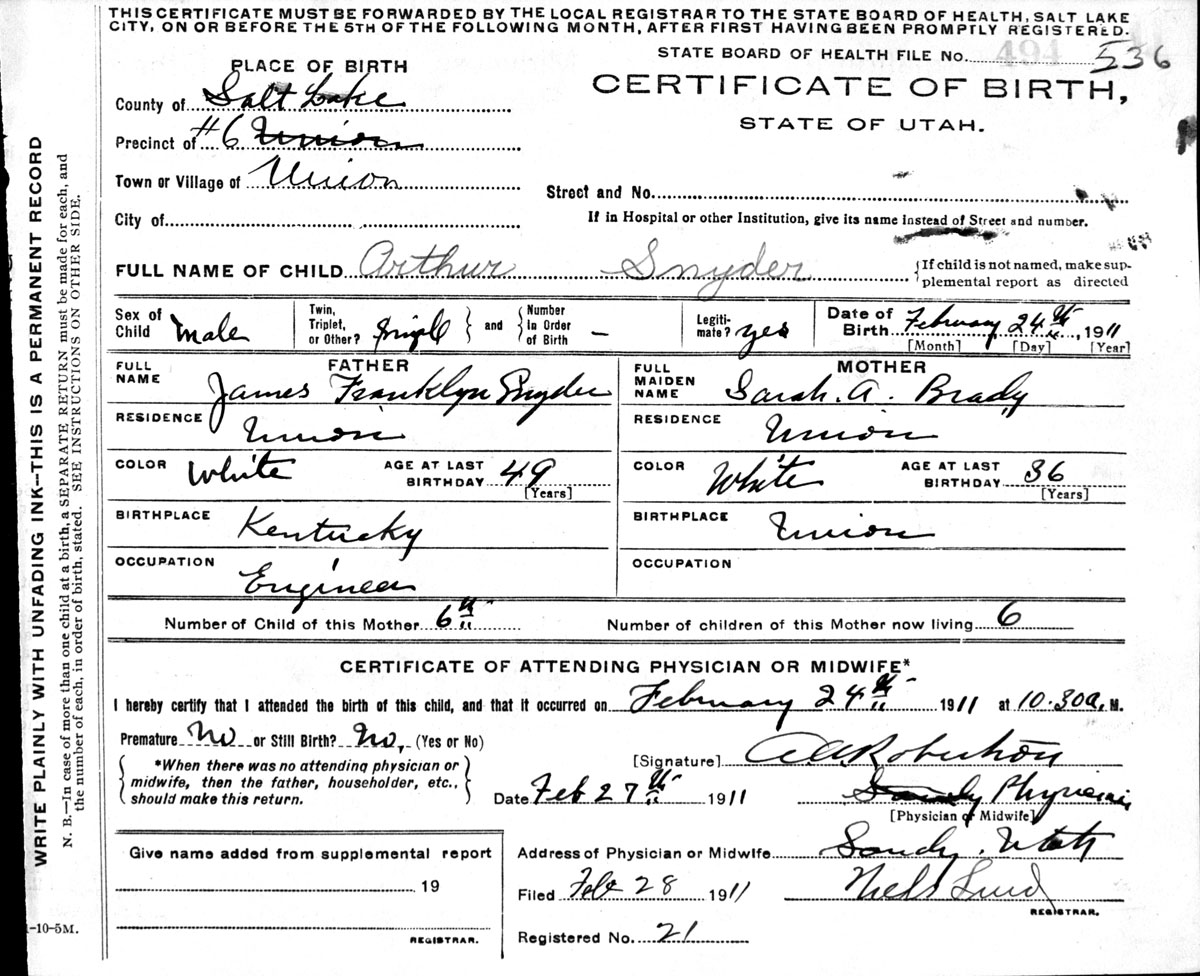 THIS CERTIFICATE MUST BE FORWARDED BY THE LOCAL REGISTRAR TO THE STATE BOARD OF HEALTH, SALT LAKE
CITY, ON OR BEFORE THE 5TH OF THE FOLLOWING MONTH, AFTER FIRST HAVING BEEN PROMPTLY REGISTERED.
STATE BOARD OF HEALTH FILE No. 494 536
PLACE OF BIRTH
CERTIFICATE OF BIRTH,
STATE OF UTAH.
County of Salt Lake
Precinct of #6 Union
Town or Village of Union
Street and No.
City of
If in Hospital or other Institution, give its name Instead of Street and number.
FULL NAME OF CHILD Arthur Snyder
{If child is not named, make sup-
plemental report as directed
Sex of Child Male
Twin, Triplet, or Other? Single } and { Number In Order of Birth –
Legiti-mate? yes
Date of Birth February 24th, 1911
[Month] [Day] [Year]
FATHER
FULL NAME James Franklyn Snyder
RESIDENCE Union
COLOR White AGE AT LAST BIRTHDAY 49
[Years]
BIRTHPLACE Kentucky
OCCUPATION Engineer
MOTHER
FULL MAIDEN NAME Sarah. A. Brady
RESIDENCE Union
COLOR White AGE AT LAST BIRTHDAY 36
[Years]
BIRTHPLACE Union
OCCUPATION
Number of Child of this Mother 6th
Number of children of this Mother now living 6
CERTIFICATE OF ATTENDING PHYSICIAN OR MIDWIFE*
I hereby certify that I attended the birth of this child, and that it occurred on February 24th 1911 at 10.30a. M.
Premature No or Still Birth? No, (Yes or No)
{ *When there was no attending physician or
midwife, then the father, householder, etc.,
should make this return. }
[Signature] A.A. Robertson
Date Feb 27th 1911
Physician
[Physician or Midwife]
Give name added from supplemental report
19
REGISTRAR.
Address of Physician or Midwife Sandy. Utah
Filed Feb 28 1911 Niels Lind
REGISTRAR.
Registered No. 21
WRITE PLAINLY WITH UNFADING INK—THIS IS A PERMANENT RECORD
N. B.—In case of more than one child at a birth, a SEPARATE RETURN must be made for each, and
the number of each, in order of birth, stated. SEE INSTRUCTIONS ON OTHER SIDE.
1-10-5M.